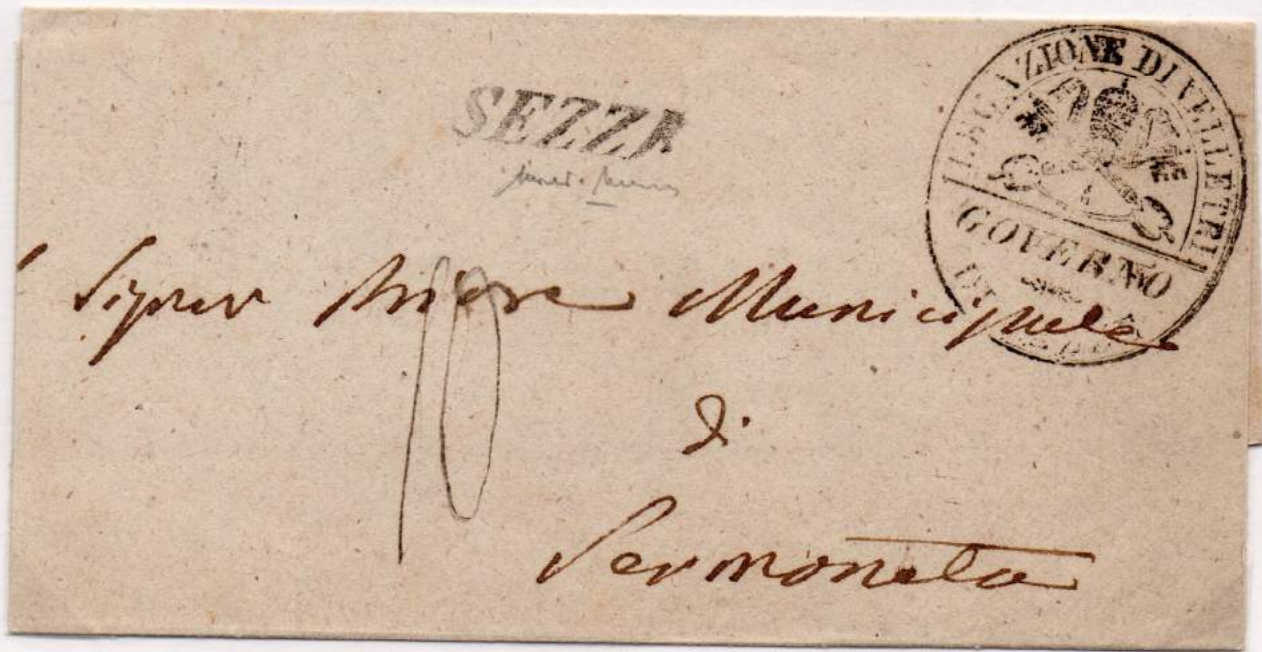 SEZZE
LEGAZIONE DI VELLETRI
GOVERNO
DI
Signor Priore Municipale
10
di
Sermoneta